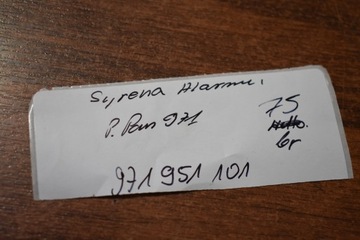 Syrena Alarmu,
P. Pas 971 75
br
971 951 101